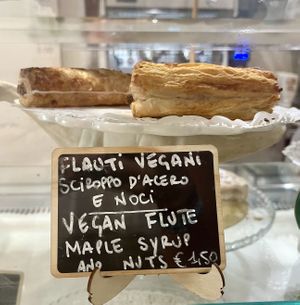 FLAUTI VEGANI
SCIROPPO D'ACERO
E NOCI
VEGAN FLUTE
MAPLE SYRUP
AND NUTS € 1,50